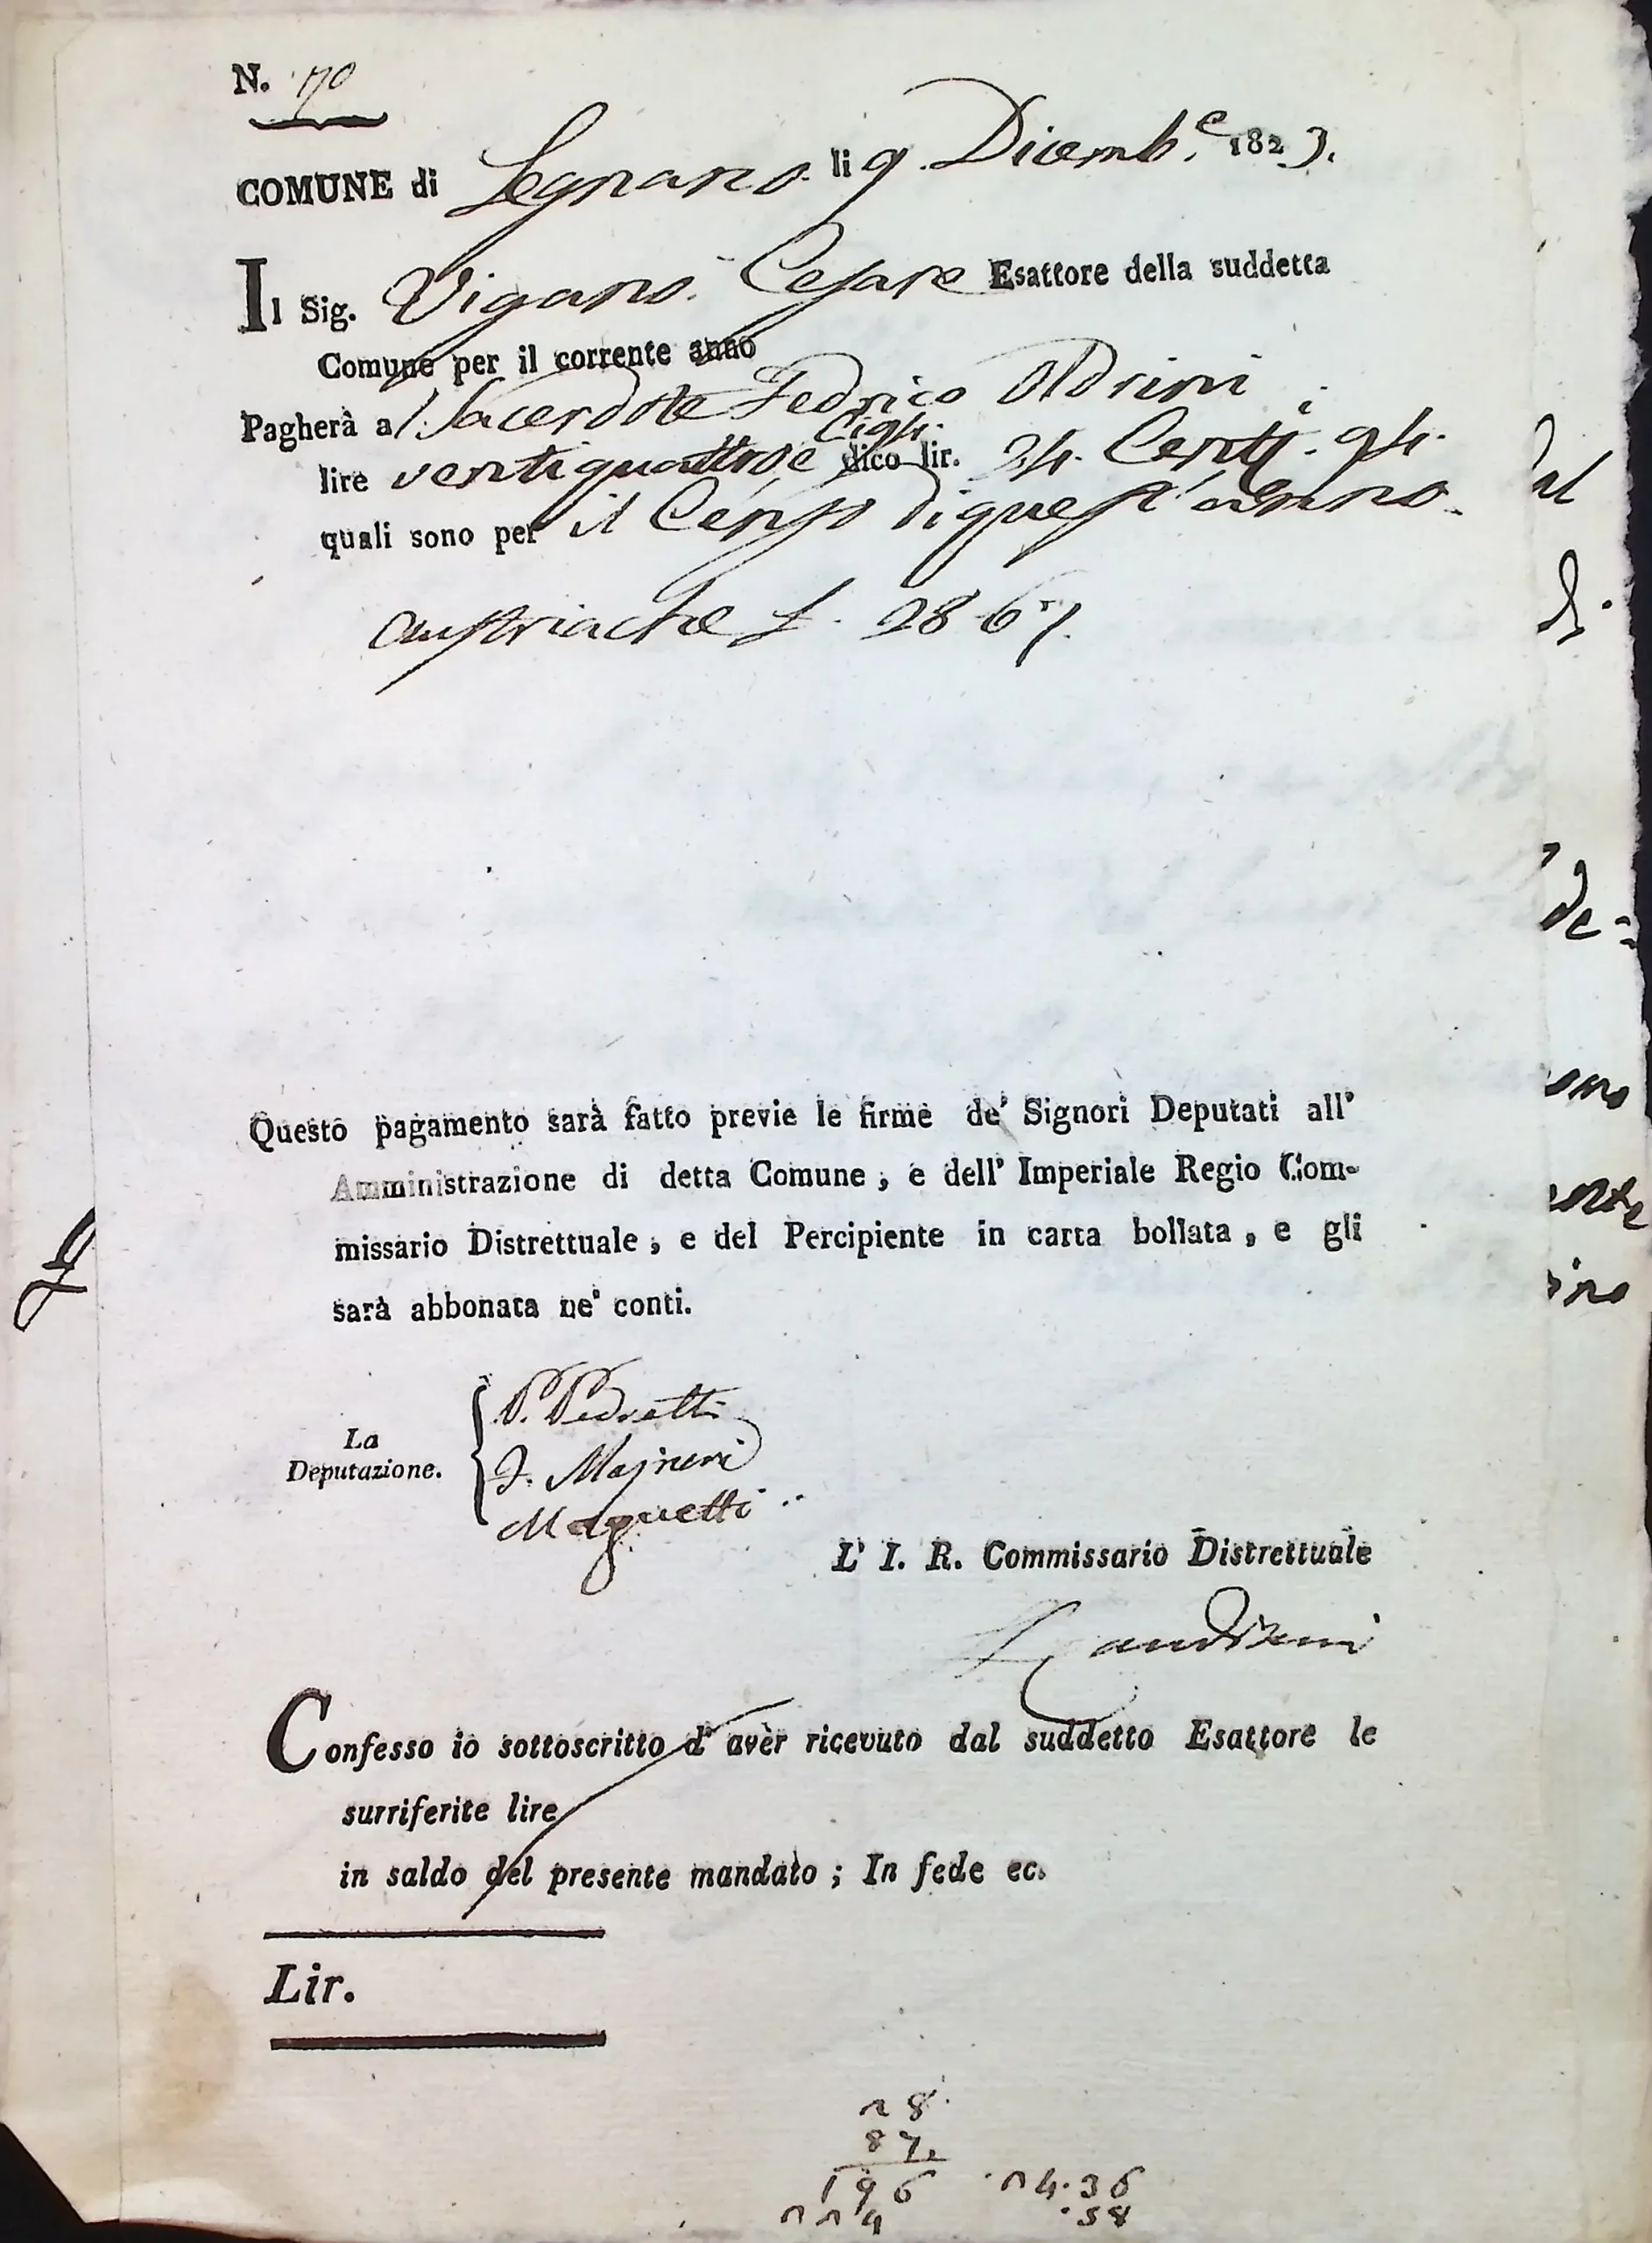 N. 70
COMUNE di Legnano li 9 Dicemb.e 1823.
Il Sig. Viganò Cesare Esattore della suddetta
Comune per il corrente anno
Pagherà al Sacerdote Fedrico Oldrini
lire ventiquattro e dico lir. 24. Cent. 94.
quali sono per il Censo di quest'anno.
austriache L. 28 67.
Questo pagamento sarà fatto previe le firme de' Signori Deputati all'
Amministrazione di detta Comune, e dell' Imperiale Regio Com-
missario Distrettuale, e del Percipiente in carta bollata, e gli
sarà abbonata ne' conti.
La
Deputazione.
P. Pedretti
J. Majneri
L' I. R. Commissario Distrettuale
Confesso io sottoscritto d' aver ricevuto dal suddetto Esattore le
surriferite lire
in saldo del presente mandato; In fede ec.
Lir.
28
87.
196
224
24.36
.58